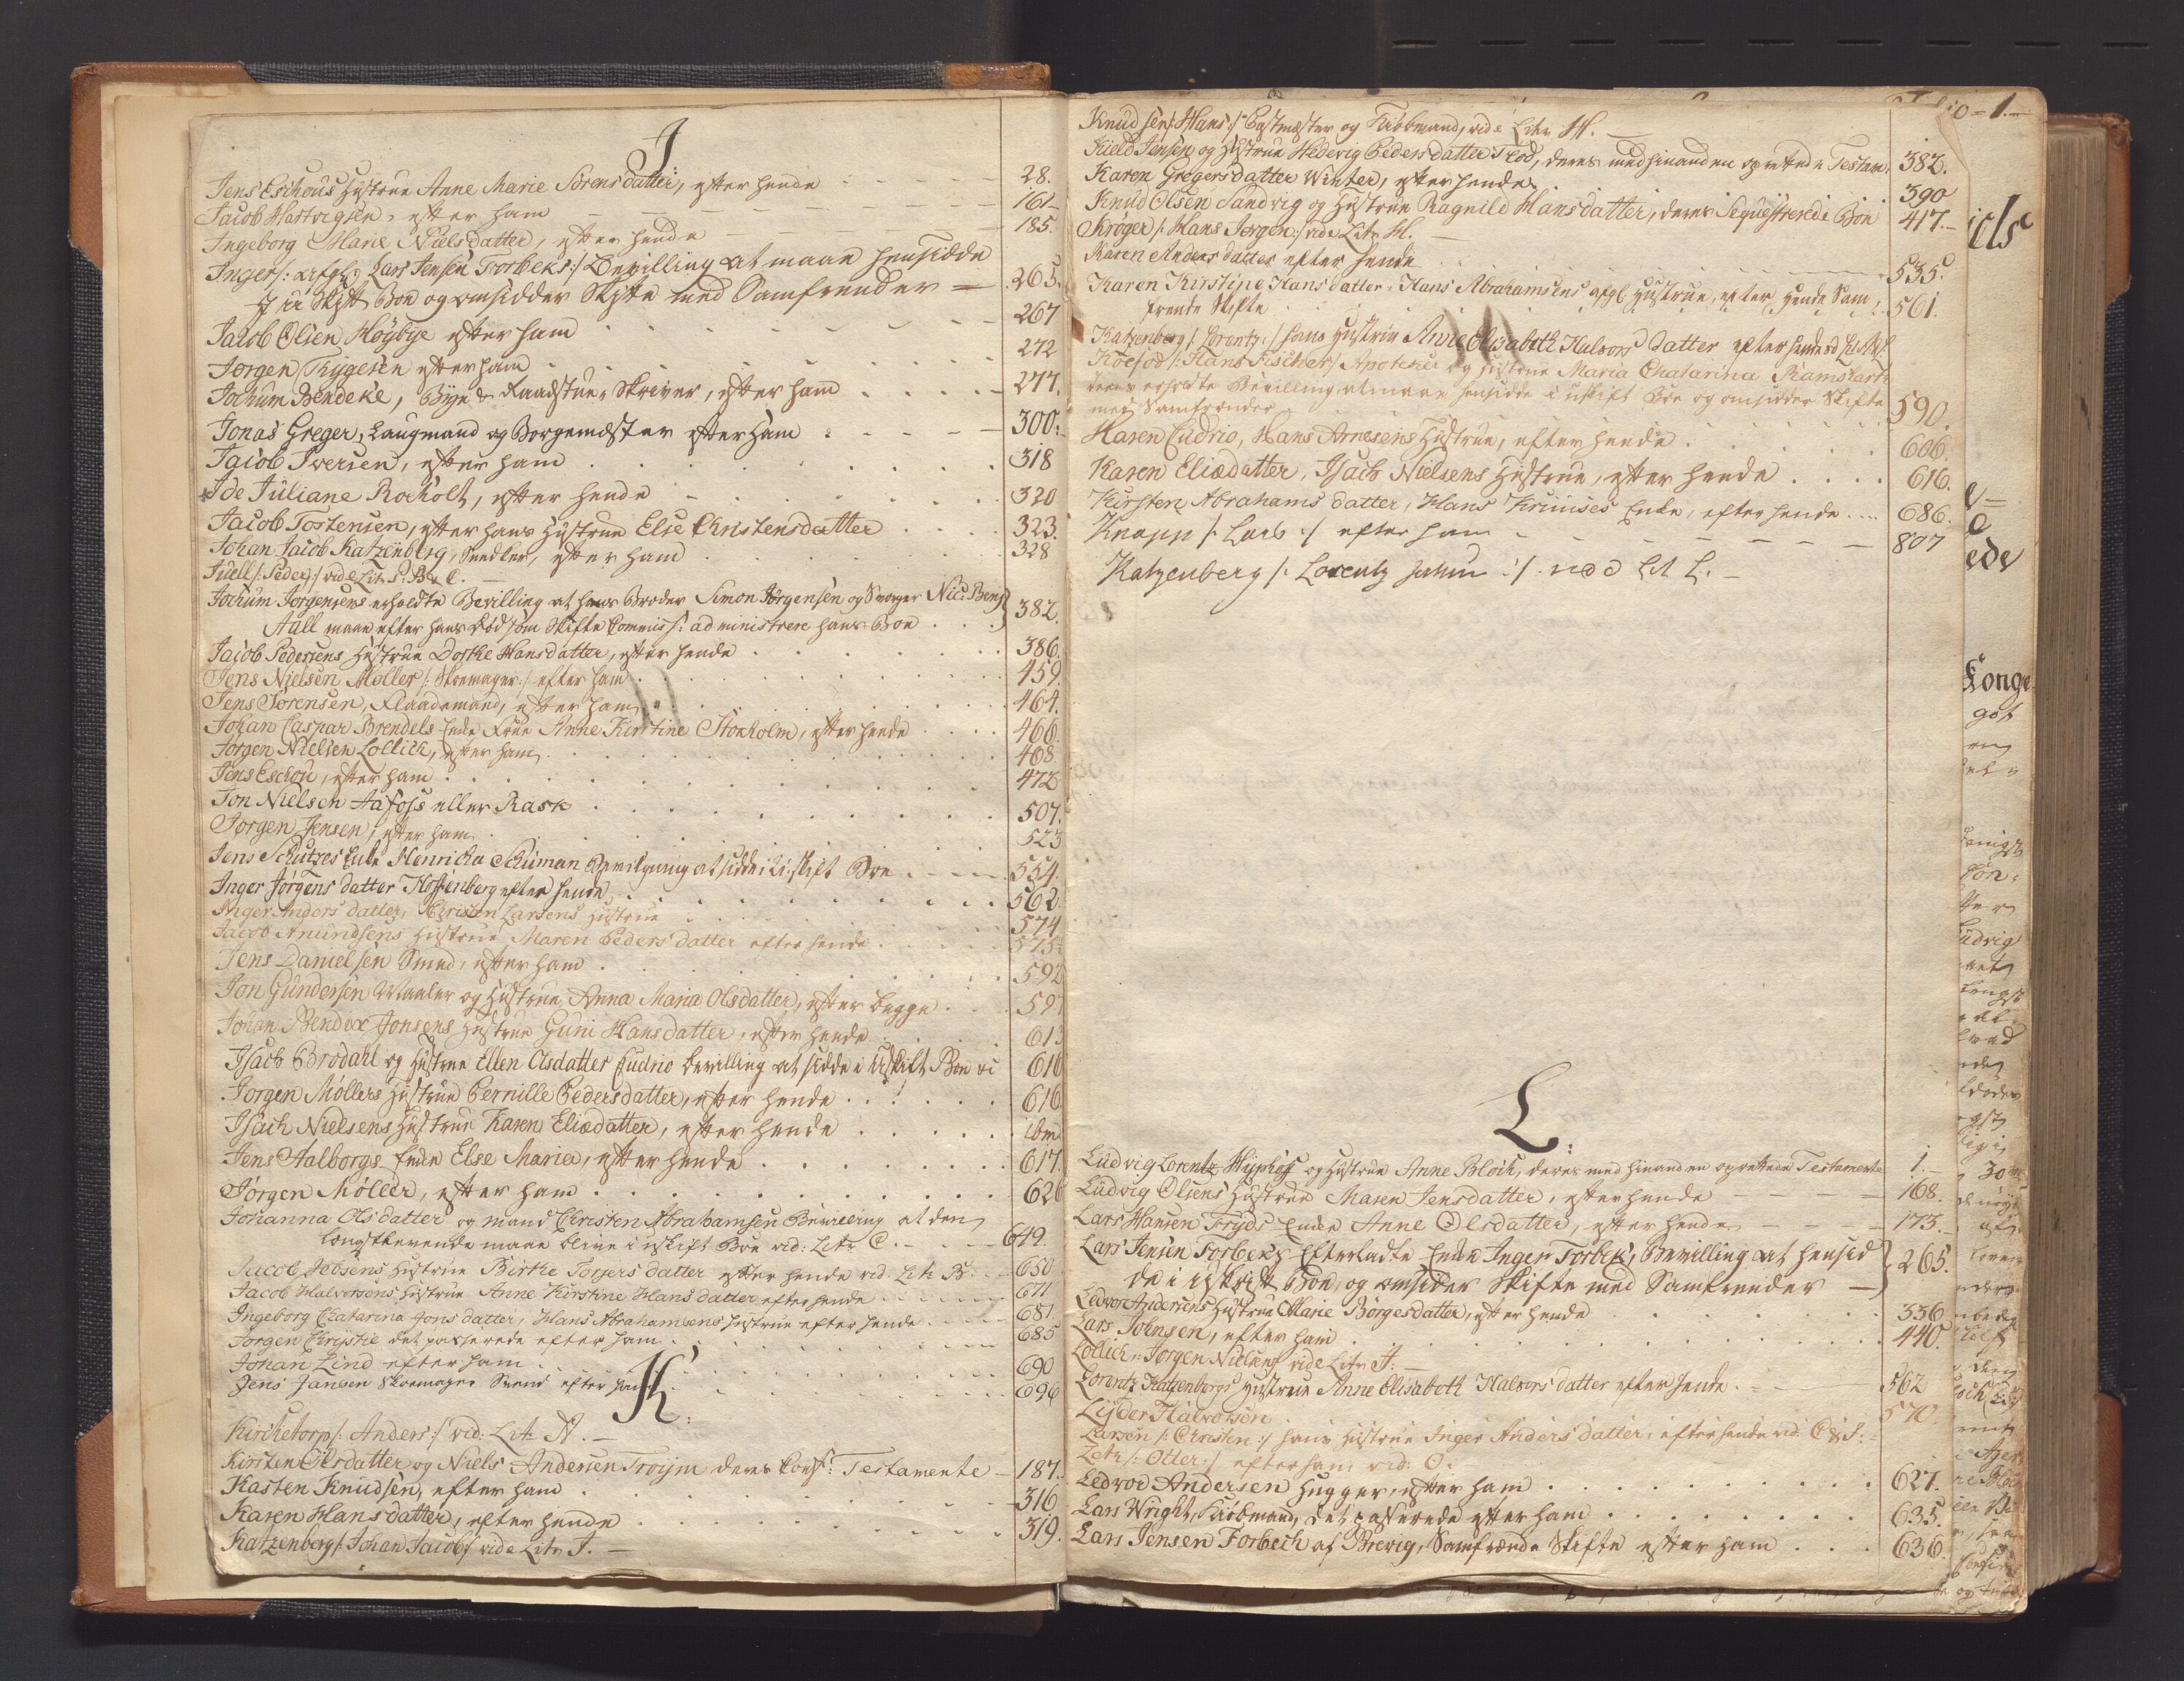 J
Jens Eschous Hustrue Anne Marie Sörensdatter, efter hende 28.
Jacob Hartvigsen, efter ham 161
Ingeborg Marie Nielsdatter, efter hende 185.
Inger /: afgl: Lars Jensen Forbeks :/ Bevilling at maae hensidde
J u skift Boe og omsidder Skifte med Samfrender 265.
Jacob Olsen Höybye efter ham 267
Jörgen Tygesen efter ham 272
Jochum Bendeke, Bye & Raadstue Skriver, efter ham 277.
Jonas Greger, Laugmand og Borgemester efter ham 300.
Jacob Iversen, efter ham 318
Ide Juliane Rocholt, efter hende 320
Jacob Tostensen, efter hans Hustrue Else Christensdatter 323.
Johan Jacob Katzenberg, Smedker, efter ham 328
Juell /: Peder :/ vide Litr P: B & C.
Jochum Jörgensens erholdte Bevilling at hans Broder Simon Jörgensen og Svoger Nic: Benj
Aall maae efter hans Död som Skifte Commiss: administrere hans Boe 382.
Jacob Pedersens Hustrue Dorthe Hansdatter, efter hende 386.
Jens Nielsen Möller /: Skoemager :/ efter ham 459.
Jens Sörensen, Flaademand, efter ham 464.
Johan Caspar Brendels Enke Frue Anne Kirstine Stokholm, efter hende 466.
Jörgen Nielsen Lollich, efter ham 468
Jens Eschou, efter ham 472
Jon Nielsen Aafoss eller Rask 507.
Jörgen Jensen, efter ham 523
Jens Schutzes Enke Henricha Schuman Bevilgning at sidde i U: skift Boe 554.
Inger Jörgens datter Hoffenberg efter hende 562
Inger Anders datter, Christen Larsens Hustrue 574
Jacob Amundsens Hustrue Maren Peders datter efter hende 575
Jens Danielsen Smed, efter ham 592
Jon Gundersen Maaler og Hustrue Anna Maria Olsdatter, efter begge 597
Johan Bendix Jonsens Hustrue Guni Hansdatter, efter hende 613
Isach Brodahl og Hustrue Ellen Olsdatter Cudrio bevilling at sidde i Uskift Boe 616
Jörgen Möllers Hustrue Pernille Pedersdatter, efter hende 616
Isach Nielsens Hustrue Karen Eliædatter, efter hende ibm
Jens Aalborgs Enke Else Maria, efter hende 617.
Jörgen Möller, efter ham 626
Johanna Olsdatter og mand Christen Abrahamsen Bevilling at den
længstlevende maae blive i uskift Boe vid: Litr C. 649.
Jacob Jebsens Hustrue Birthe Torgers datter efter hende vid: Litr B. 650
Jacob Halvorsens Hustrue Anne Kirstine Hans datter efter hende 671
Ingeborg Chatarina Jons datter, Hans Abrahamsens Hustrue efter hende 681.
Jörgen Christie det passerede efter ham 685
Johan Lind efter ham 690
Jens Jansen Skoemager Svend efter ham 696
K:
Kirchetorp /: Anders :/ vid: Litr A.
Kirsten Olsdatter og Niels Andersen Troijm deres Conf: Testamente 187.
Kasten Knudsen, efter ham 316
Karen Hansdatter, efter hende 319.
Katzenberg /: Johan Jacob :/ vide Litr J.
Knudsen /: Hans :/ Postmester og Kiöbmand, vide Litr H.
Kield Jensen og Hustrue Hedevig Pedersdatter Flod, deres med hinanden oprettede Testam: 382.
Karen Gregersdatter Winter, efter hende 390
Knud Olsen Sandvig og Hustrue Ragnild Hansdatter, deres Sequestrerede Boe 417.
Kröger /: Hans Jörgen :/ vide Litr H.
Karen Anders datter efter hende 535.
Karen Kirstine Hans datter, Hans Abrahamsens afgl. Hustrue, efter hende Sam:
frende Skifte 561.
Katzenberg /: Lorentz :/ hans Hustrue Anne Elisabeth Halvors datter efter hende vid Lit: A & L
Koefod /: Hans Fischer :/ Apotheker og Hustrue Maria Chatarina Ramshart
deres erholdte Bevilling at maae hensidde i uskift Boe og omsidder Skifte
med Samfrender 590.
Karen Cudrio, Hans Arnesens Hustrue, efter hende 606.
Karen Eliædatter, Isach Nielsens Hustrue, efter hende 616.
Kirsten Abrahams datter, Hans Kruuses Enke, efter hende 686.
Knapp /: Lars :/ efter ham 807
Katzenberg /: Lorentz Johan :/ vid Lit L.
L:
Ludvig Lorentz Wijphöf og Hustrue Anne Bloch, deres med hinanden oprettede Testamente 1.
Ludvig Olsens Hustrue Maren Jensdatter, efter hende 168.
Lars Hansen Fryds Enke Anne Olsdatter, efter hende 173.
Lars Jensen Forbeks Efterladte Enke Inger Forbek, Bevilling at hensid
de i uskift Boe, og omsider Skifte med Samfrender 265.
Ledvor Andersens Hustrue Marie Börgesdatter, efter hende 336
Lars Johnsen, efter ham 440.
Lollich: Jörgen Nielsen vide Litr J.
Lorentz Katzenbergs Hustrue Anne Elisabeth Halvors datter efter hende 562
Lyder Halvorsen 570.
Larsen /: Christen :/ hans Hustrue Inger Anders datter, efter hende vid: C & I.
Letr /: Otter :/ efter ham vid: O.
Ledvor Andersen Hugger, efter ham 627.
Lars Wright, Kiöbmand, det passerede efter ham 635.
Lars Jensen Forbech af Brevig, Samfrende Skifte efter ham 636.